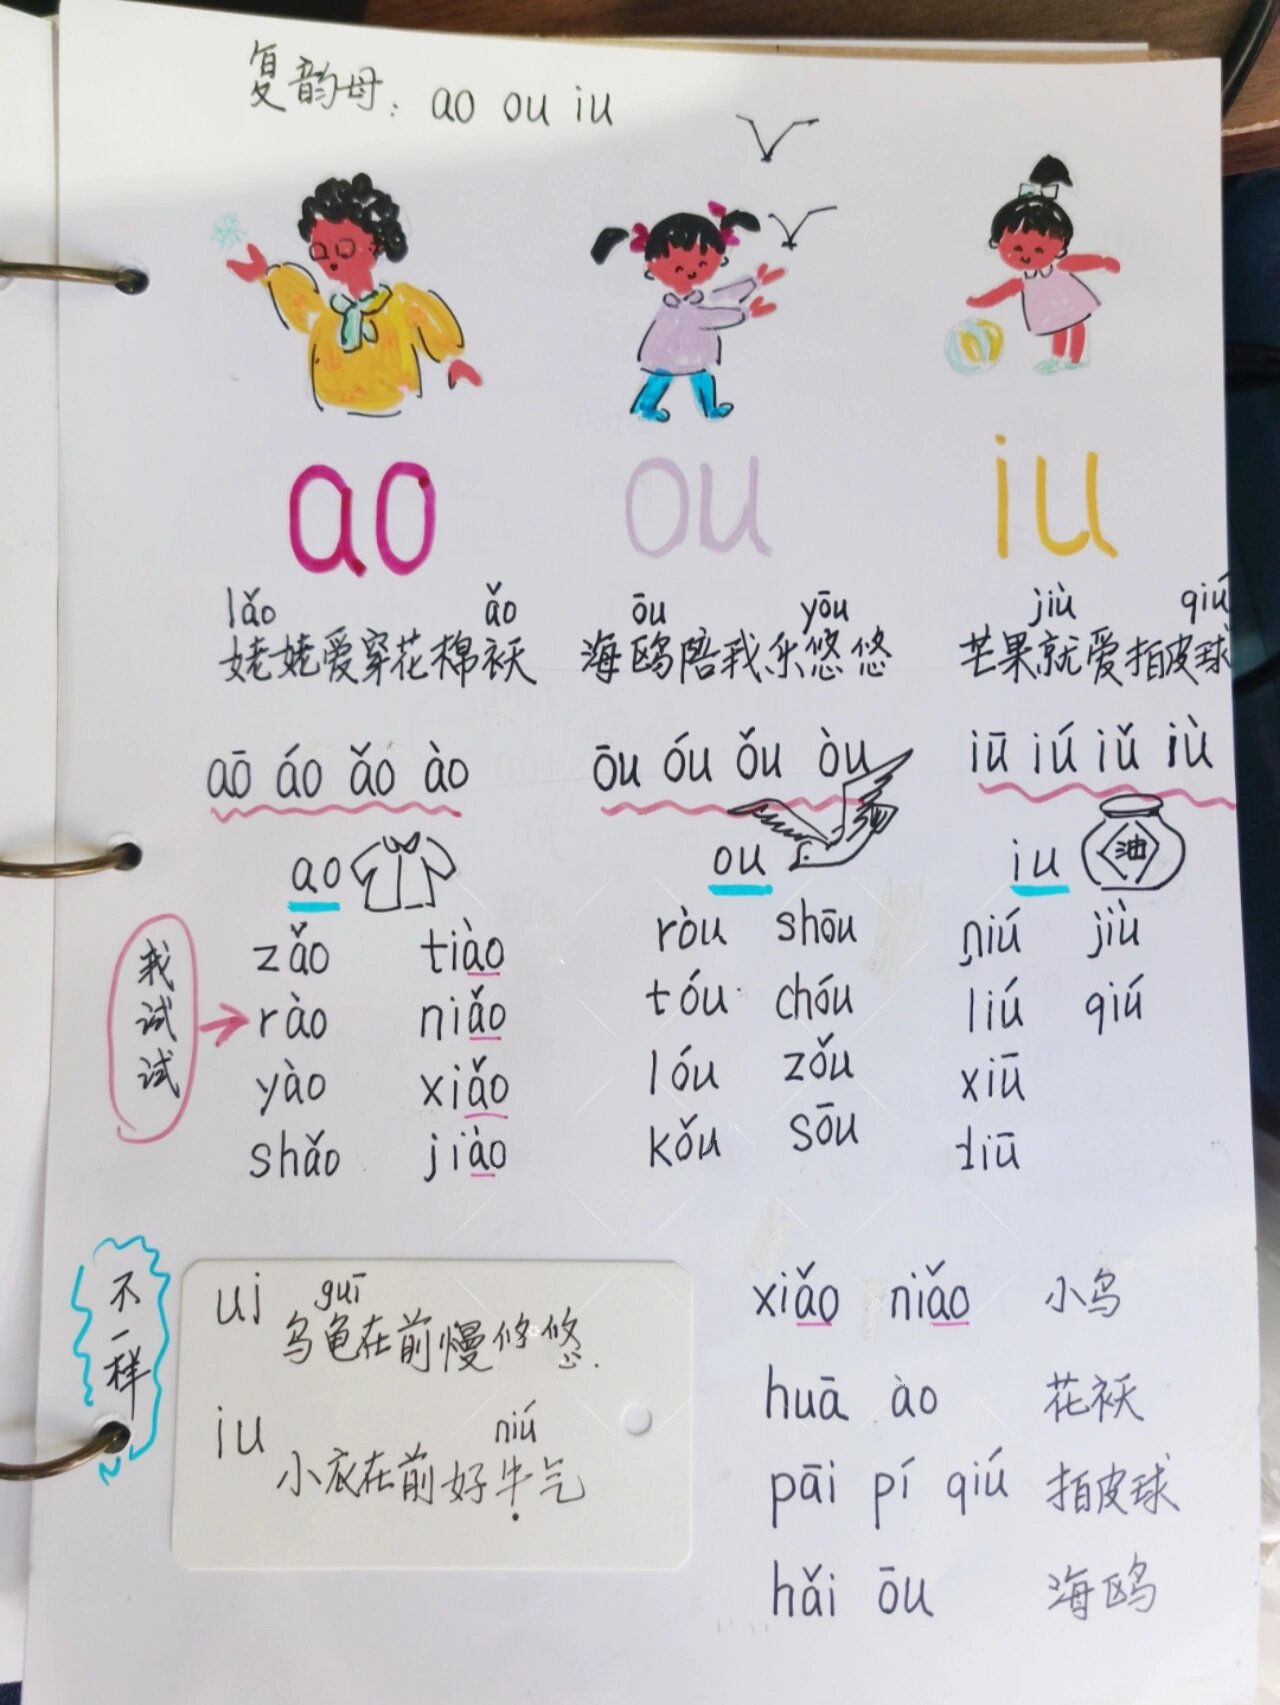 复韵母: ao ou iu
ao ou iu
lǎo ǎo ōu yōu jiù qiú
姥姥爱穿花棉袄 海鸥陪我乐悠悠 芒果就爱拍皮球
aō áo ǎo ào ōu óu ǒu òu iū iú iǔ iù
ao ou iu 油
我试试
zǎo tiào ròu shōu niú jiù
rào niǎo tóu chóu liú qiú
yào xiǎo lóu zǒu xiū
shǎo jiào kǒu sōu diū
不一样
ui guī
乌龟在前慢悠悠.
iu niú
小衣在前好牛气
xiǎo niǎo 小鸟
huā ào 花袄
pāi pí qiú 拍皮球
hǎi ōu 海鸥